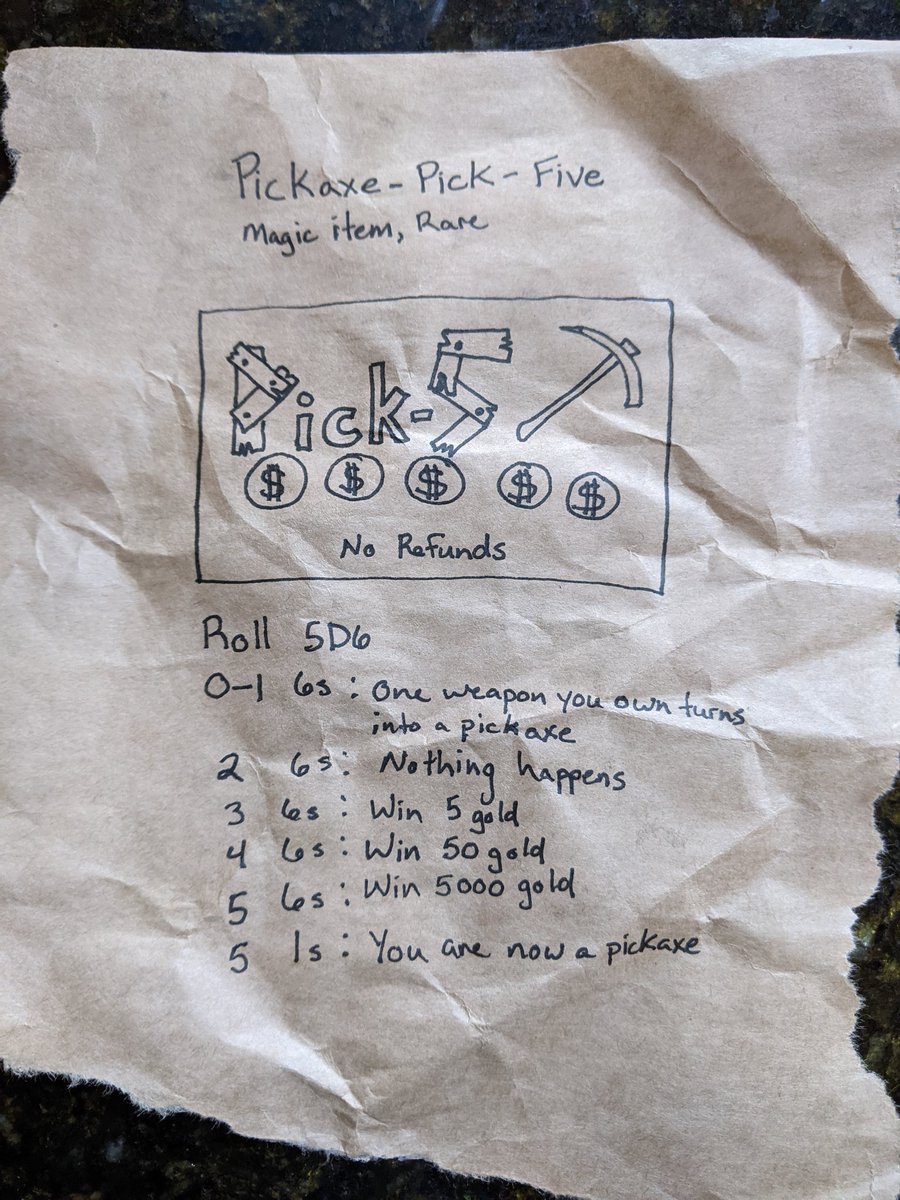 Pickaxe - Pick - Five
Magic item, Rare
Pick-5
$ $ $ $ $
No Refunds
Roll 5D6
0-1 6s: One weapon you own turns
into a pickaxe
2 6s: Nothing happens
3 6s: Win 5 gold
4 6s: Win 50 gold
5 6s: Win 5000 gold
5 1s: You are now a pickaxe